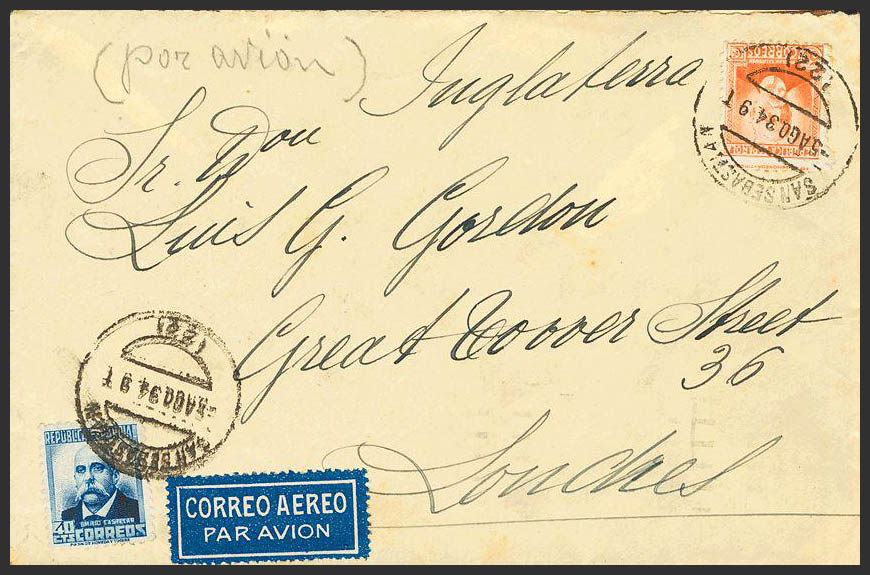 (por avión)
Inglaterra
Sr. Don
Luis G. Gordon
Great Toower Street
36
Londres
CORREO AEREO
PAR AVION
SAN SEBASTIAN
5 AGO 34 9 T
(22)
SAN SEBASTIAN
5 AGO 34 9 T
(22)
CORREOS
REPUBLICA
EMILIO CASTELAR
40
CTS
CORREOS